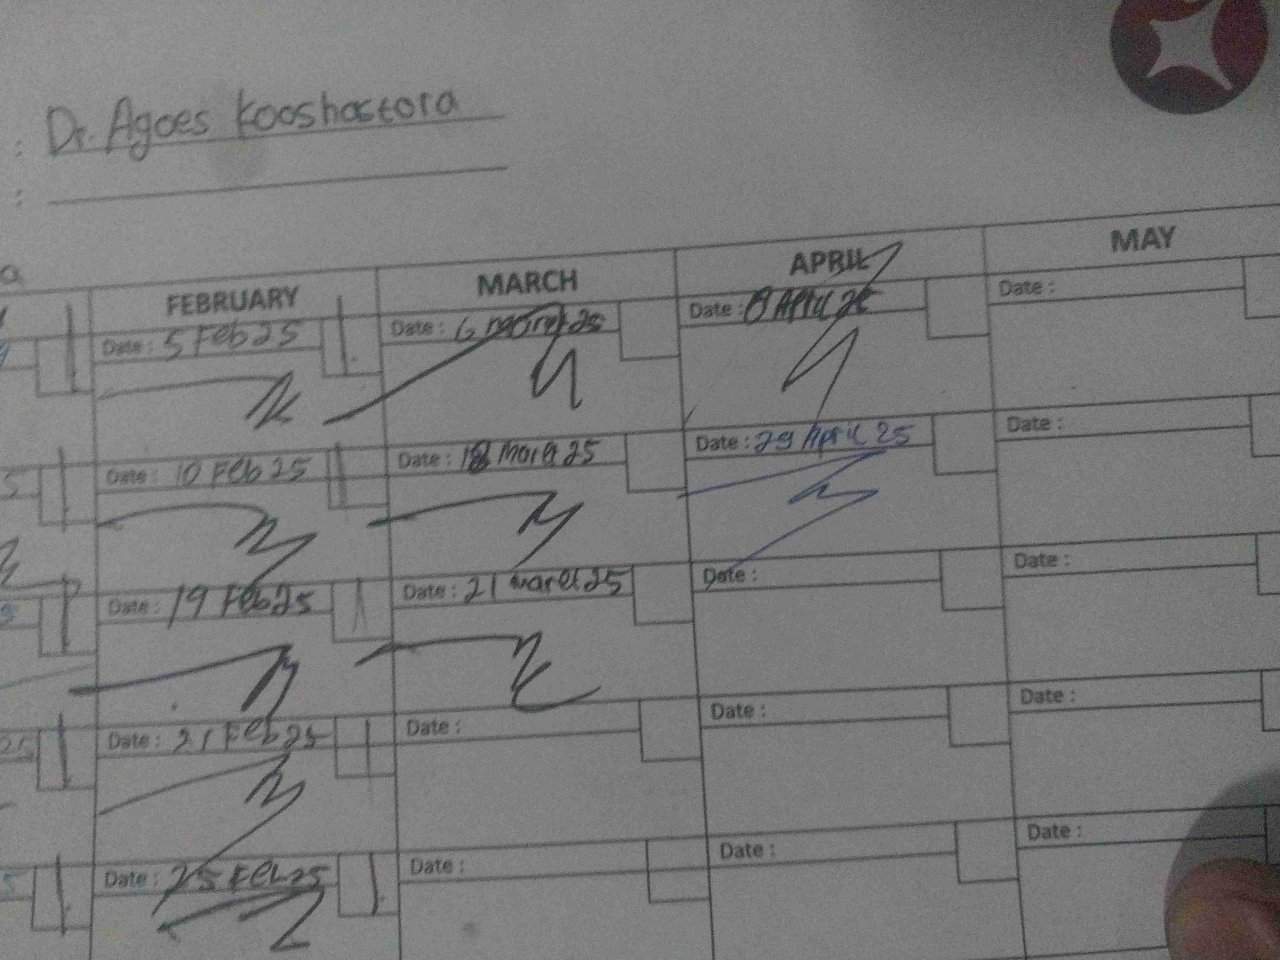 : Dr. Agoes Kooshastoro
:
FEBRUARY MARCH APRIL MAY
Date : 5 Feb 25 Date : 6 March 25 Date : 8 April 25 Date :
Date : 10 Feb 25 Date : 18 March 25 Date : 29 April 25 Date :
Date : 19 Feb 25 Date : 21 March 25 Date : Date :
Date : 21 Feb 25 Date : Date : Date :
Date : 25 Feb 25 Date : Date : Date :